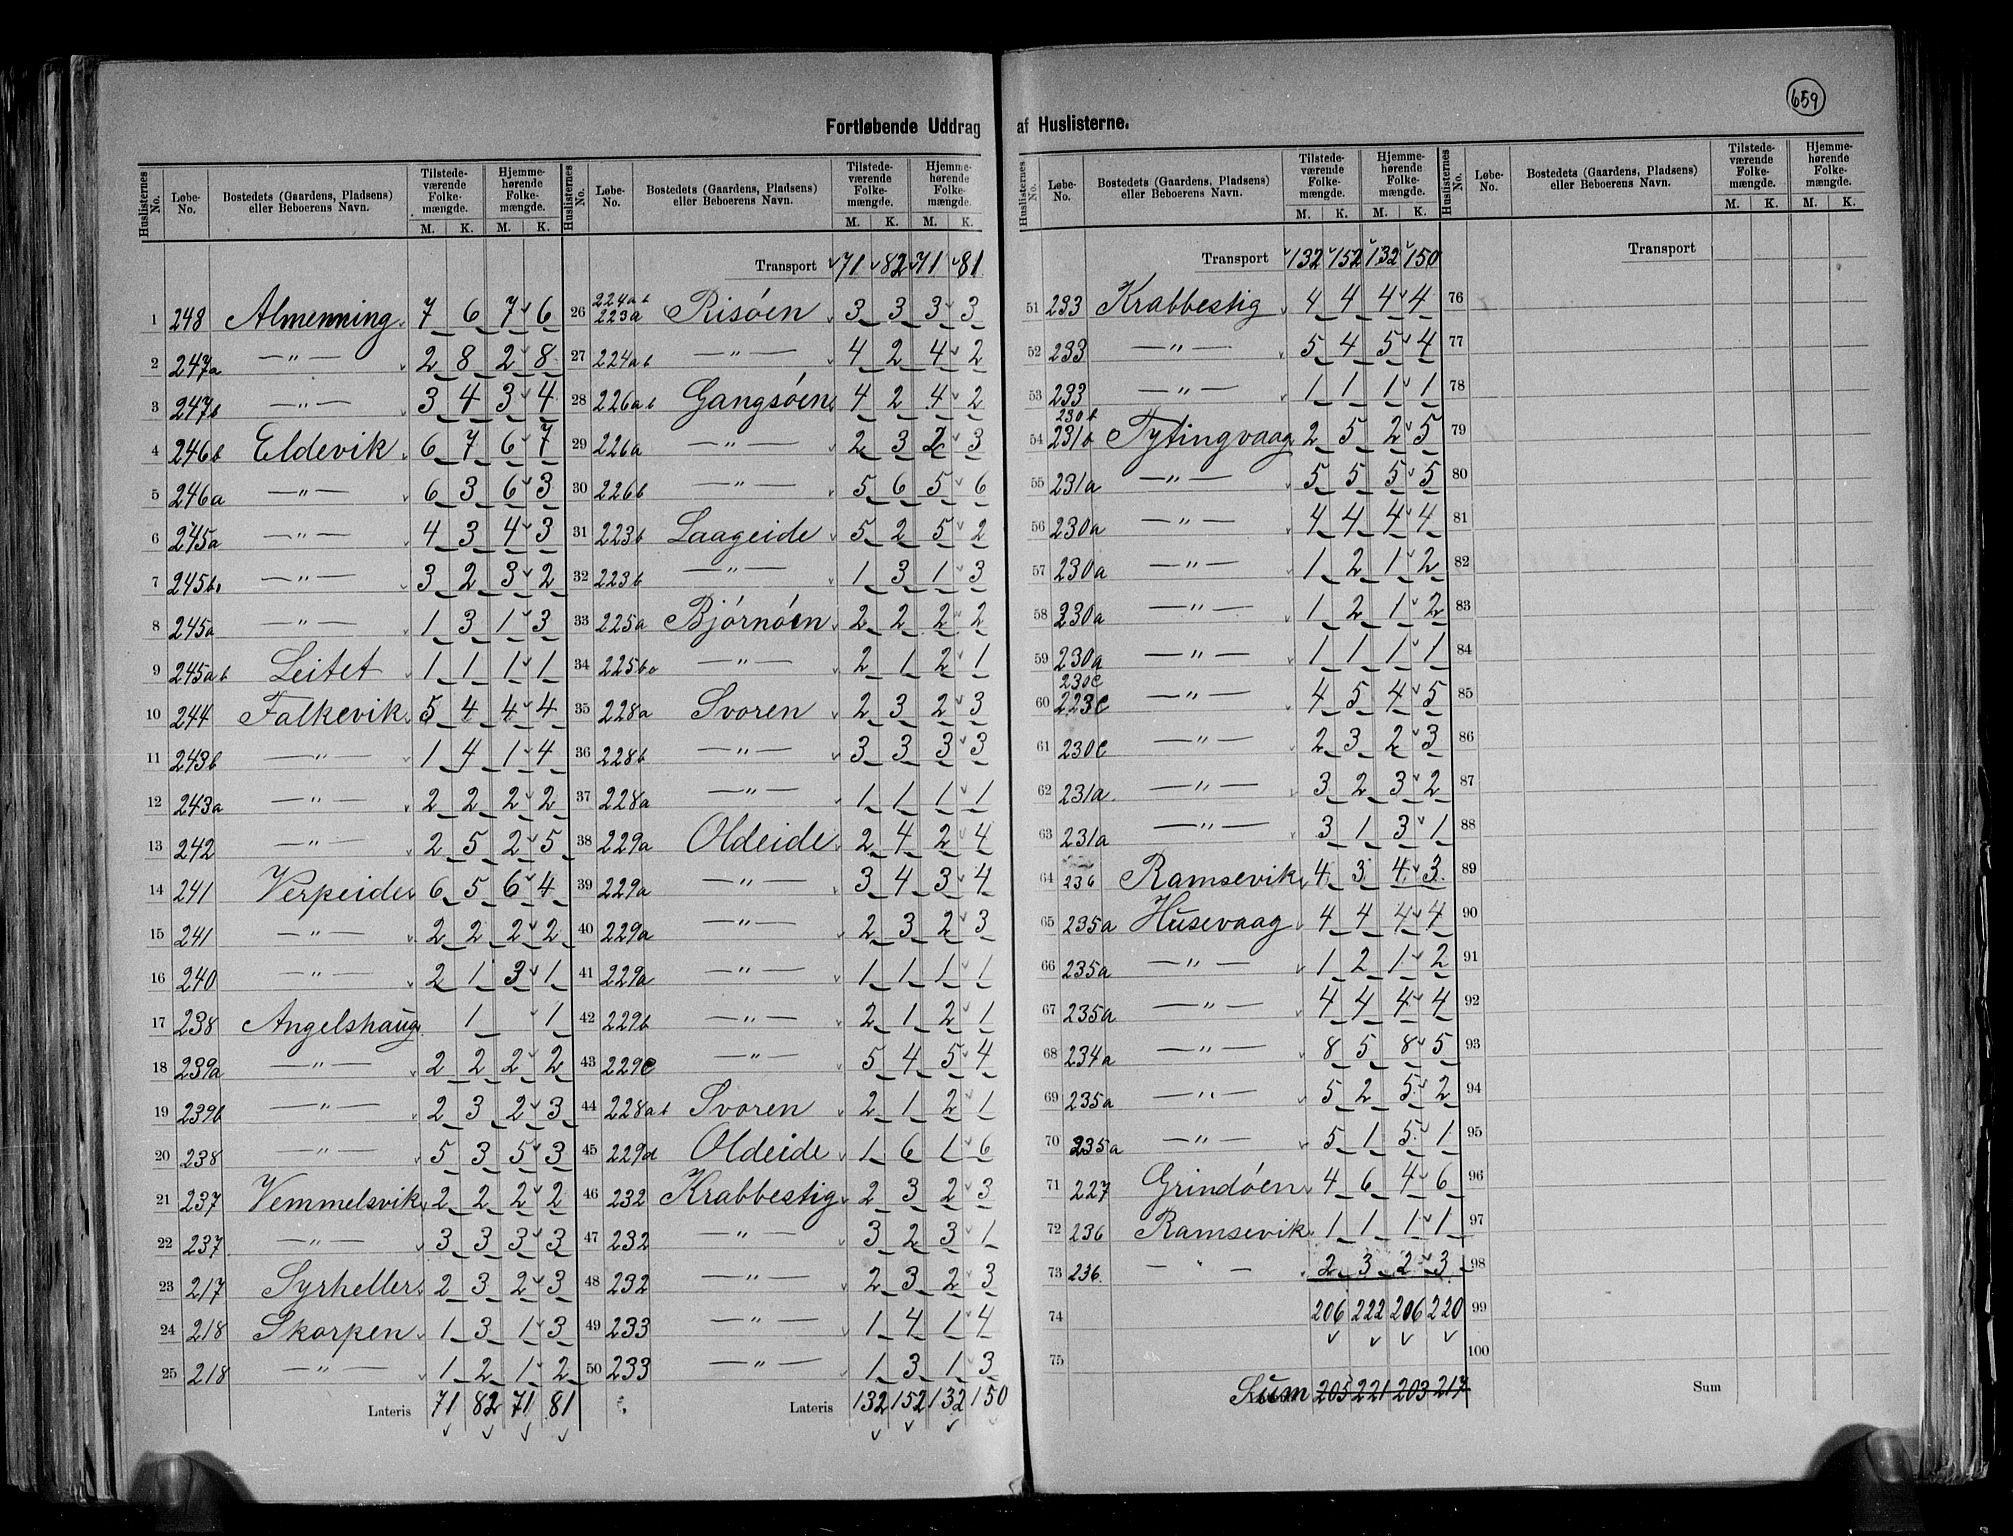 659
Fortløbende Uddrag af Huslisterne.
Huslisternes No. Løbe-No. Bostedets (Gaardens, Pladsens) eller Beboerens Navn. Tilstedeværende Folkemængde. M. K. Hjemmehørende Folkemængde. M. K.
1 248 Almenning 7 6 7 6
2 247a —"— 2 8 2 8
3 247b —"— 3 4 3 4
4 246b Eldevik 6 7 6 7
5 246a —"— 6 3 6 3
6 245a —"— 4 3 4 3
7 245b —"— 3 2 3 2
8 245a —"— 1 3 1 3
9 245ab Leitet 1 1 1 1
10 244 Falkevik 5 4 4 4
11 243b —"— 1 4 1 4
12 243a —"— 2 2 2 2
13 242 —"— 2 5 2 5
14 241 Verpeide 6 5 6 4
15 241 —"— 2 2 2 2
16 240 —"— 2 1 3 1
17 238 Angelshaug 1 1
18 239a —"— 2 2 2 2
19 239b —"— 2 3 2 3
20 238 —"— 5 3 5 3
21 237 Vemmelsvik 2 2 2 2
22 237 —"— 3 3 3 3
23 217 Syrheller 2 3 2 3
24 218 Skorpen 1 3 1 3
25 218 —"— 1 2 1 2
Lateris 71 82 71 81
Huslisternes No. Løbe-No. Bostedets (Gaardens, Pladsens) eller Beboerens Navn. Tilstedeværende Folkemængde. M. K. Hjemmehørende Folkemængde. M. K.
Transport 71 82 71 81
26 224ab 223a Risöen 3 3 3 3
27 224ab —"— 4 2 4 2
28 226ab Gangsöen 4 2 4 2
29 226a —"— 2 3 2 3
30 226b —"— 5 6 5 6
31 223b Laageide 5 2 5 2
32 223b —"— 1 3 1 3
33 225a Björnöen 2 2 2 2
34 225b —"— 2 1 2 1
35 228a Svoren 2 3 2 3
36 228b —"— 3 3 3 3
37 228a —"— 1 1 1 1
38 229a Oldeide 2 4 2 4
39 229a —"— 3 4 3 4
40 229a —"— 2 3 2 3
41 229a —"— 1 1 1 1
42 229b —"— 2 1 2 1
43 229c —"— 5 4 5 4
44 228ab Svoren 2 1 2 1
45 229d Oldeide 1 6 1 6
46 232 Krabbestig 2 3 2 3
47 232 —"— 3 2 3 1
48 232 —"— 2 3 2 3
49 233 —"— 1 4 1 4
50 233 —"— 1 3 1 3
Lateris 132 152 132 150
Huslisternes No. Løbe-No. Bostedets (Gaardens, Pladsens) eller Beboerens Navn. Tilstedeværende Folkemængde. M. K. Hjemmehørende Folkemængde. M. K.
Transport 132 152 132 150
51 233 Krabbestig 4 4 4 4
52 233 —"— 5 4 5 4
53 233 —"— 1 1 1 1
54 230b 231b Tytingvaag 2 5 2 5
55 231a —"— 5 5 5 5
56 230a —"— 4 4 4 4
57 230a —"— 1 2 1 2
58 230a —"— 1 2 1 2
59 230a —"— 1 1 1 1
60 230c 223c —"— 4 5 4 5
61 230c —"— 2 3 2 3
62 231a —"— 3 2 3 2
63 231a —"— 3 1 3 1
64 236 Ramsevik 4 3 4 3
65 235a Husevaag 4 4 4 4
66 235a —"— 1 2 1 2
67 235a —"— 4 4 4 4
68 234a —"— 8 5 8 5
69 235a —"— 5 2 5 2
70 235a —"— 5 1 5 1
71 227 Grindöen 4 6 4 6
72 236 Ramsevik 1 1 1 1
73 236 — " — 2 3 2 3
74 206 222 206 220
75
Sum 205 221 203 217
Huslisternes No. Løbe-No. Bostedets (Gaardens, Pladsens) eller Beboerens Navn. Tilstedeværende Folkemængde. M. K. Hjemmehørende Folkemængde. M. K.
Transport
76
77
78
79
80
81
82
83
84
85
86
87
88
89
90
91
92
93
94
95
96
97
98
99
100
Sum